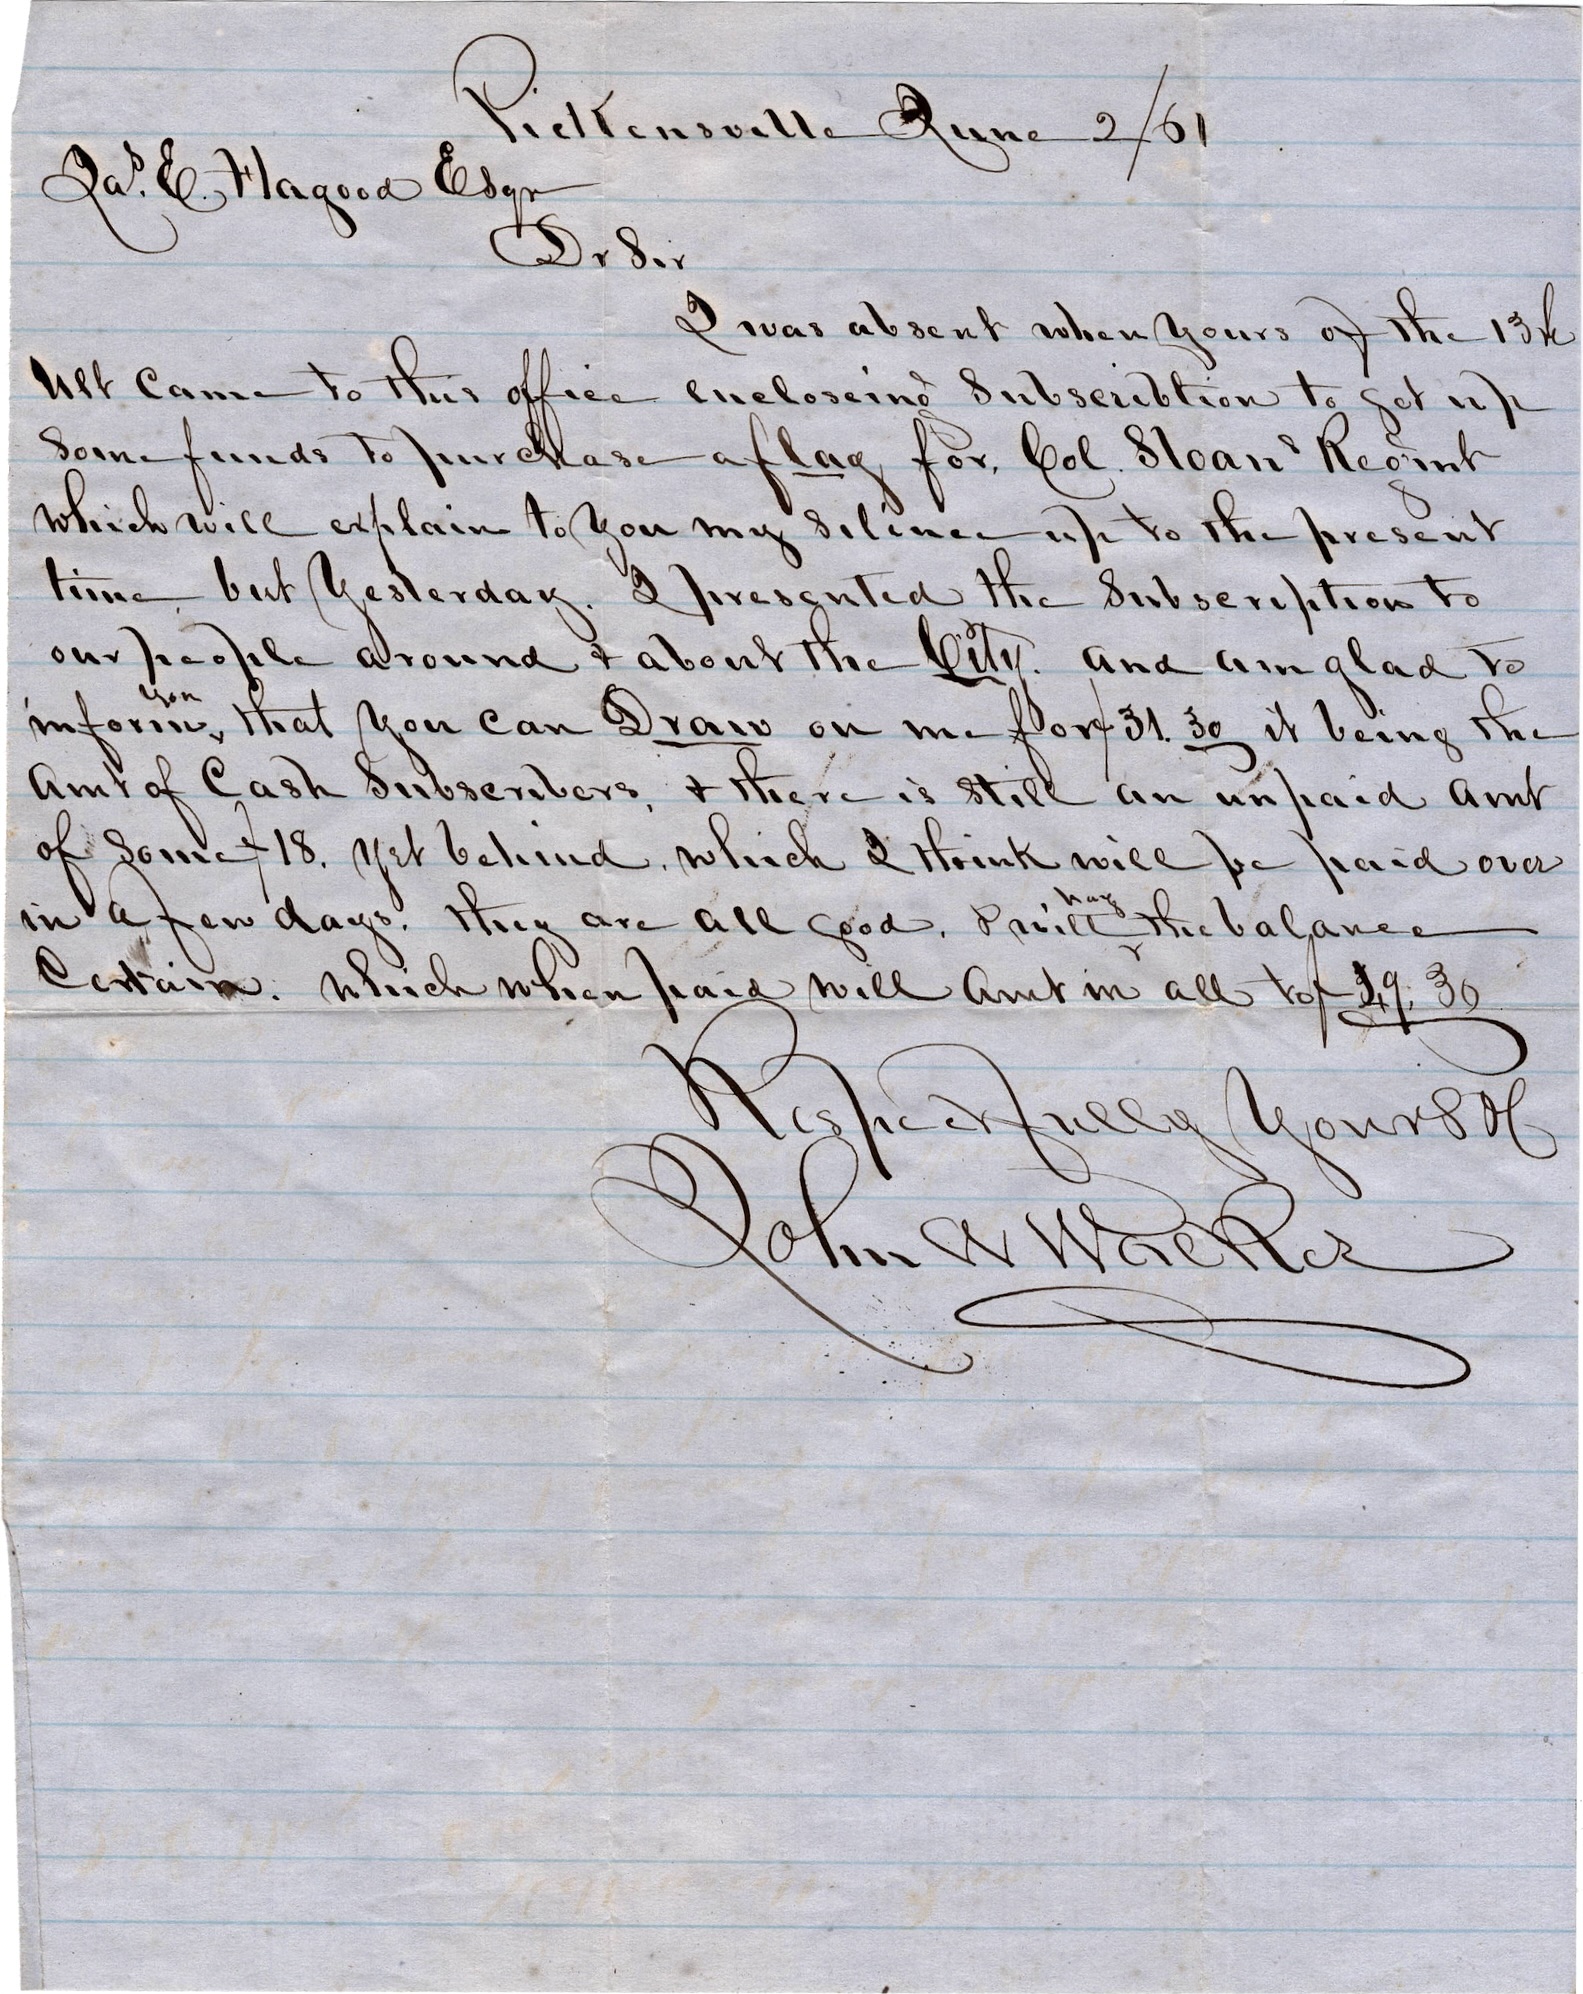 Pickensville June 2/61
Jas. E. Hagood Esqr
Dr Sir
I was absent when yours of the 13th
Ult came to this office encloseing Subscribtion to get up
some funds to purchase a flag for, Col. Sloans Regimt
which will explain to you my silence up to the present
time, but Yesterday. I presented the Subscription to
our people around & about the City. and am glad to
inform you, that you can Draw on me for $31.30 it being the
Amt of Cash Subscribers, & there is still an unpaid Amt
of some $18. yet behind, which I think will be paid over
in a few days. they are all good. & will hav the balance
Certain. which when paid will Amt in all to $49.30
Respectfully Yours &C
John W Walker